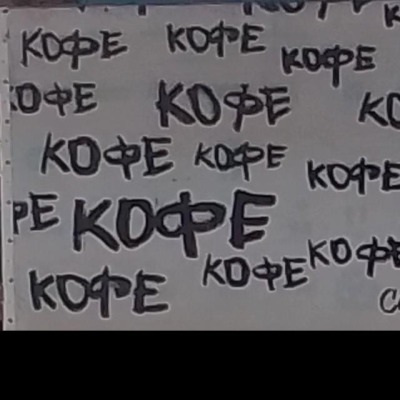 КОФЕ КОФЕ КОФЕ
КОФЕ КОФЕ
КОФЕ КОФЕ КОФЕ
КОФЕ
КОФЕ КОФЕ КОФЕ